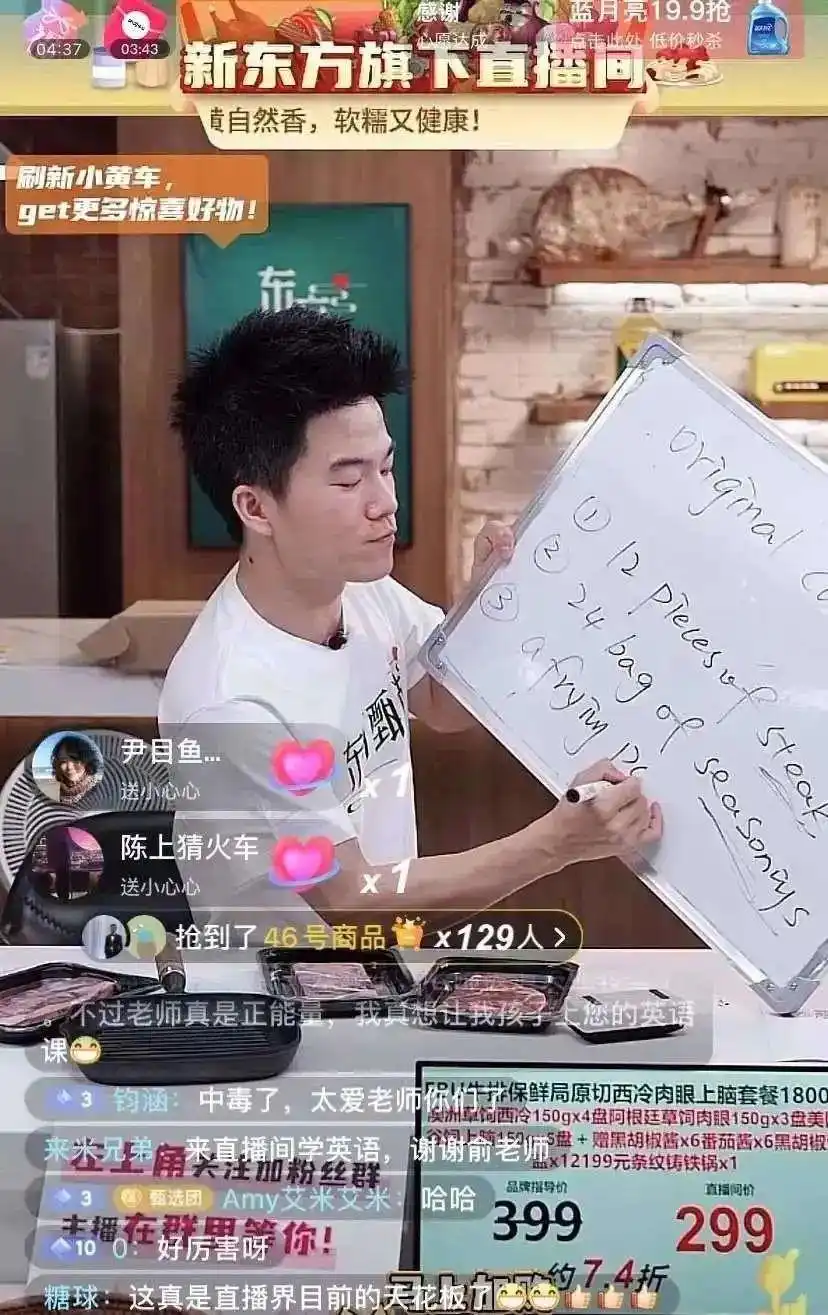 04:37
03:43
感谢
心愿达成
蓝月亮19.9抢
点击此处 低价秒杀
新东方旗下直播间
黄自然香，软糯又健康！
刷新小黄车，
get更多惊喜好物！
东方
original
① 12 pieces of steak
② 24 bag of seasonings
③ a frying
东方甄
尹目鱼...
送小心心
x 1
陈上猜火车
送小心心
x 1
抢到了 46号商品 x129人 >
。不过老师真是正能量，我真想让我孩子上您的英语
课
3 钧涵：中毒了，太爱老师你们了
来米兄弟：来直播间学英语，谢谢俞老师
左上角关注加粉丝群
3 甄选团 Amy艾米艾米：哈哈
主播在群里等你！
10 0：好厉害呀
糖球：这真是直播界目前的天花板了
牛排保鲜局原切西冷肉眼上脑套餐1800
澳洲草饲西冷150gx4盘阿根廷草饲肉眼150gx3盘美
谷饲上脑150g 5盘 + 赠黑胡椒酱x6番茄酱x6黑胡椒
盐x12199元条纹铸铁锅x1
品牌指导价
直播间价
399
299
约7.4折